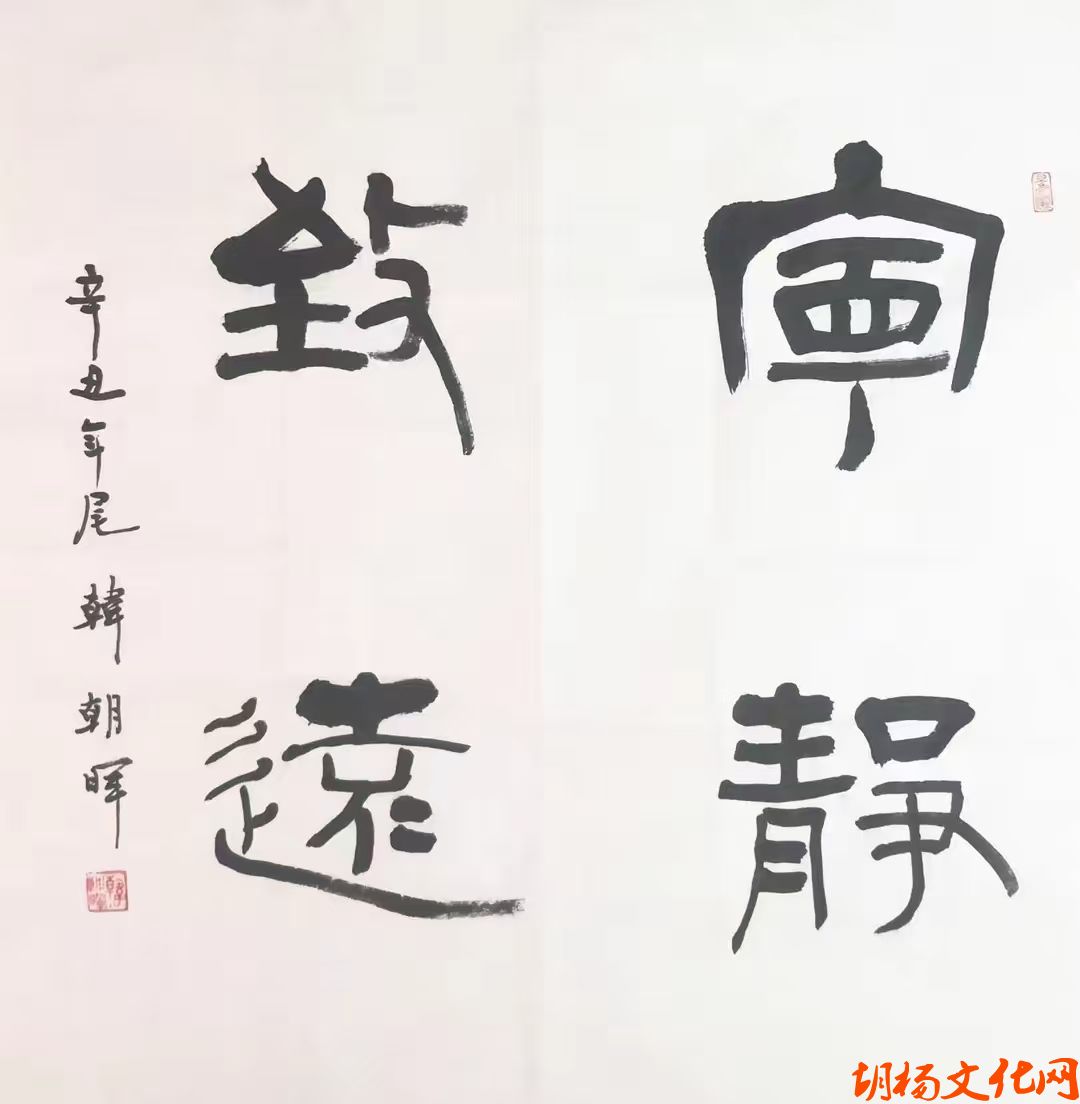 寧靜
致遠
辛丑年尾 韓朝暉
胡杨文化网